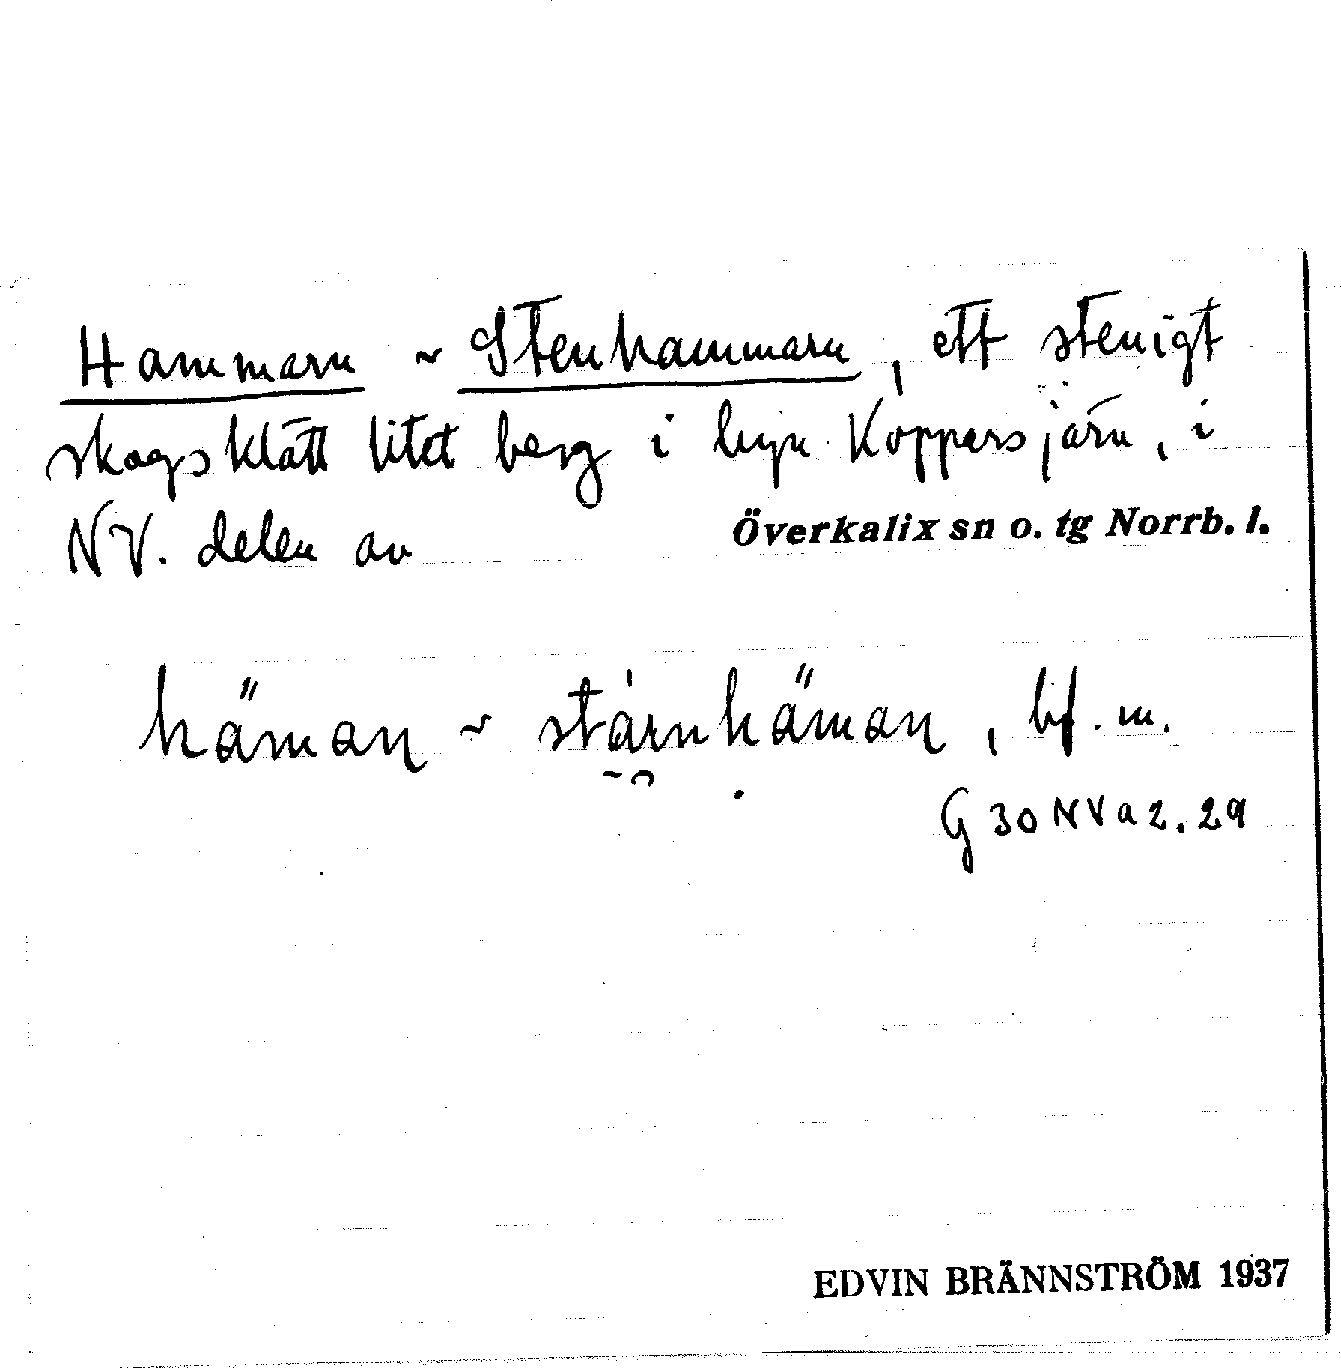 Hammarn ~ Stenhammarn, ett stenigt
skogsklätt litet berg i byn Koppersjärn, i
NV. delen av Överkalix sn o. tg Norrb. l.
häman ~ stärnhäman, bf. m.
G 30 NV a 2. 29
EDVIN BRÄNNSTRÖM 1937